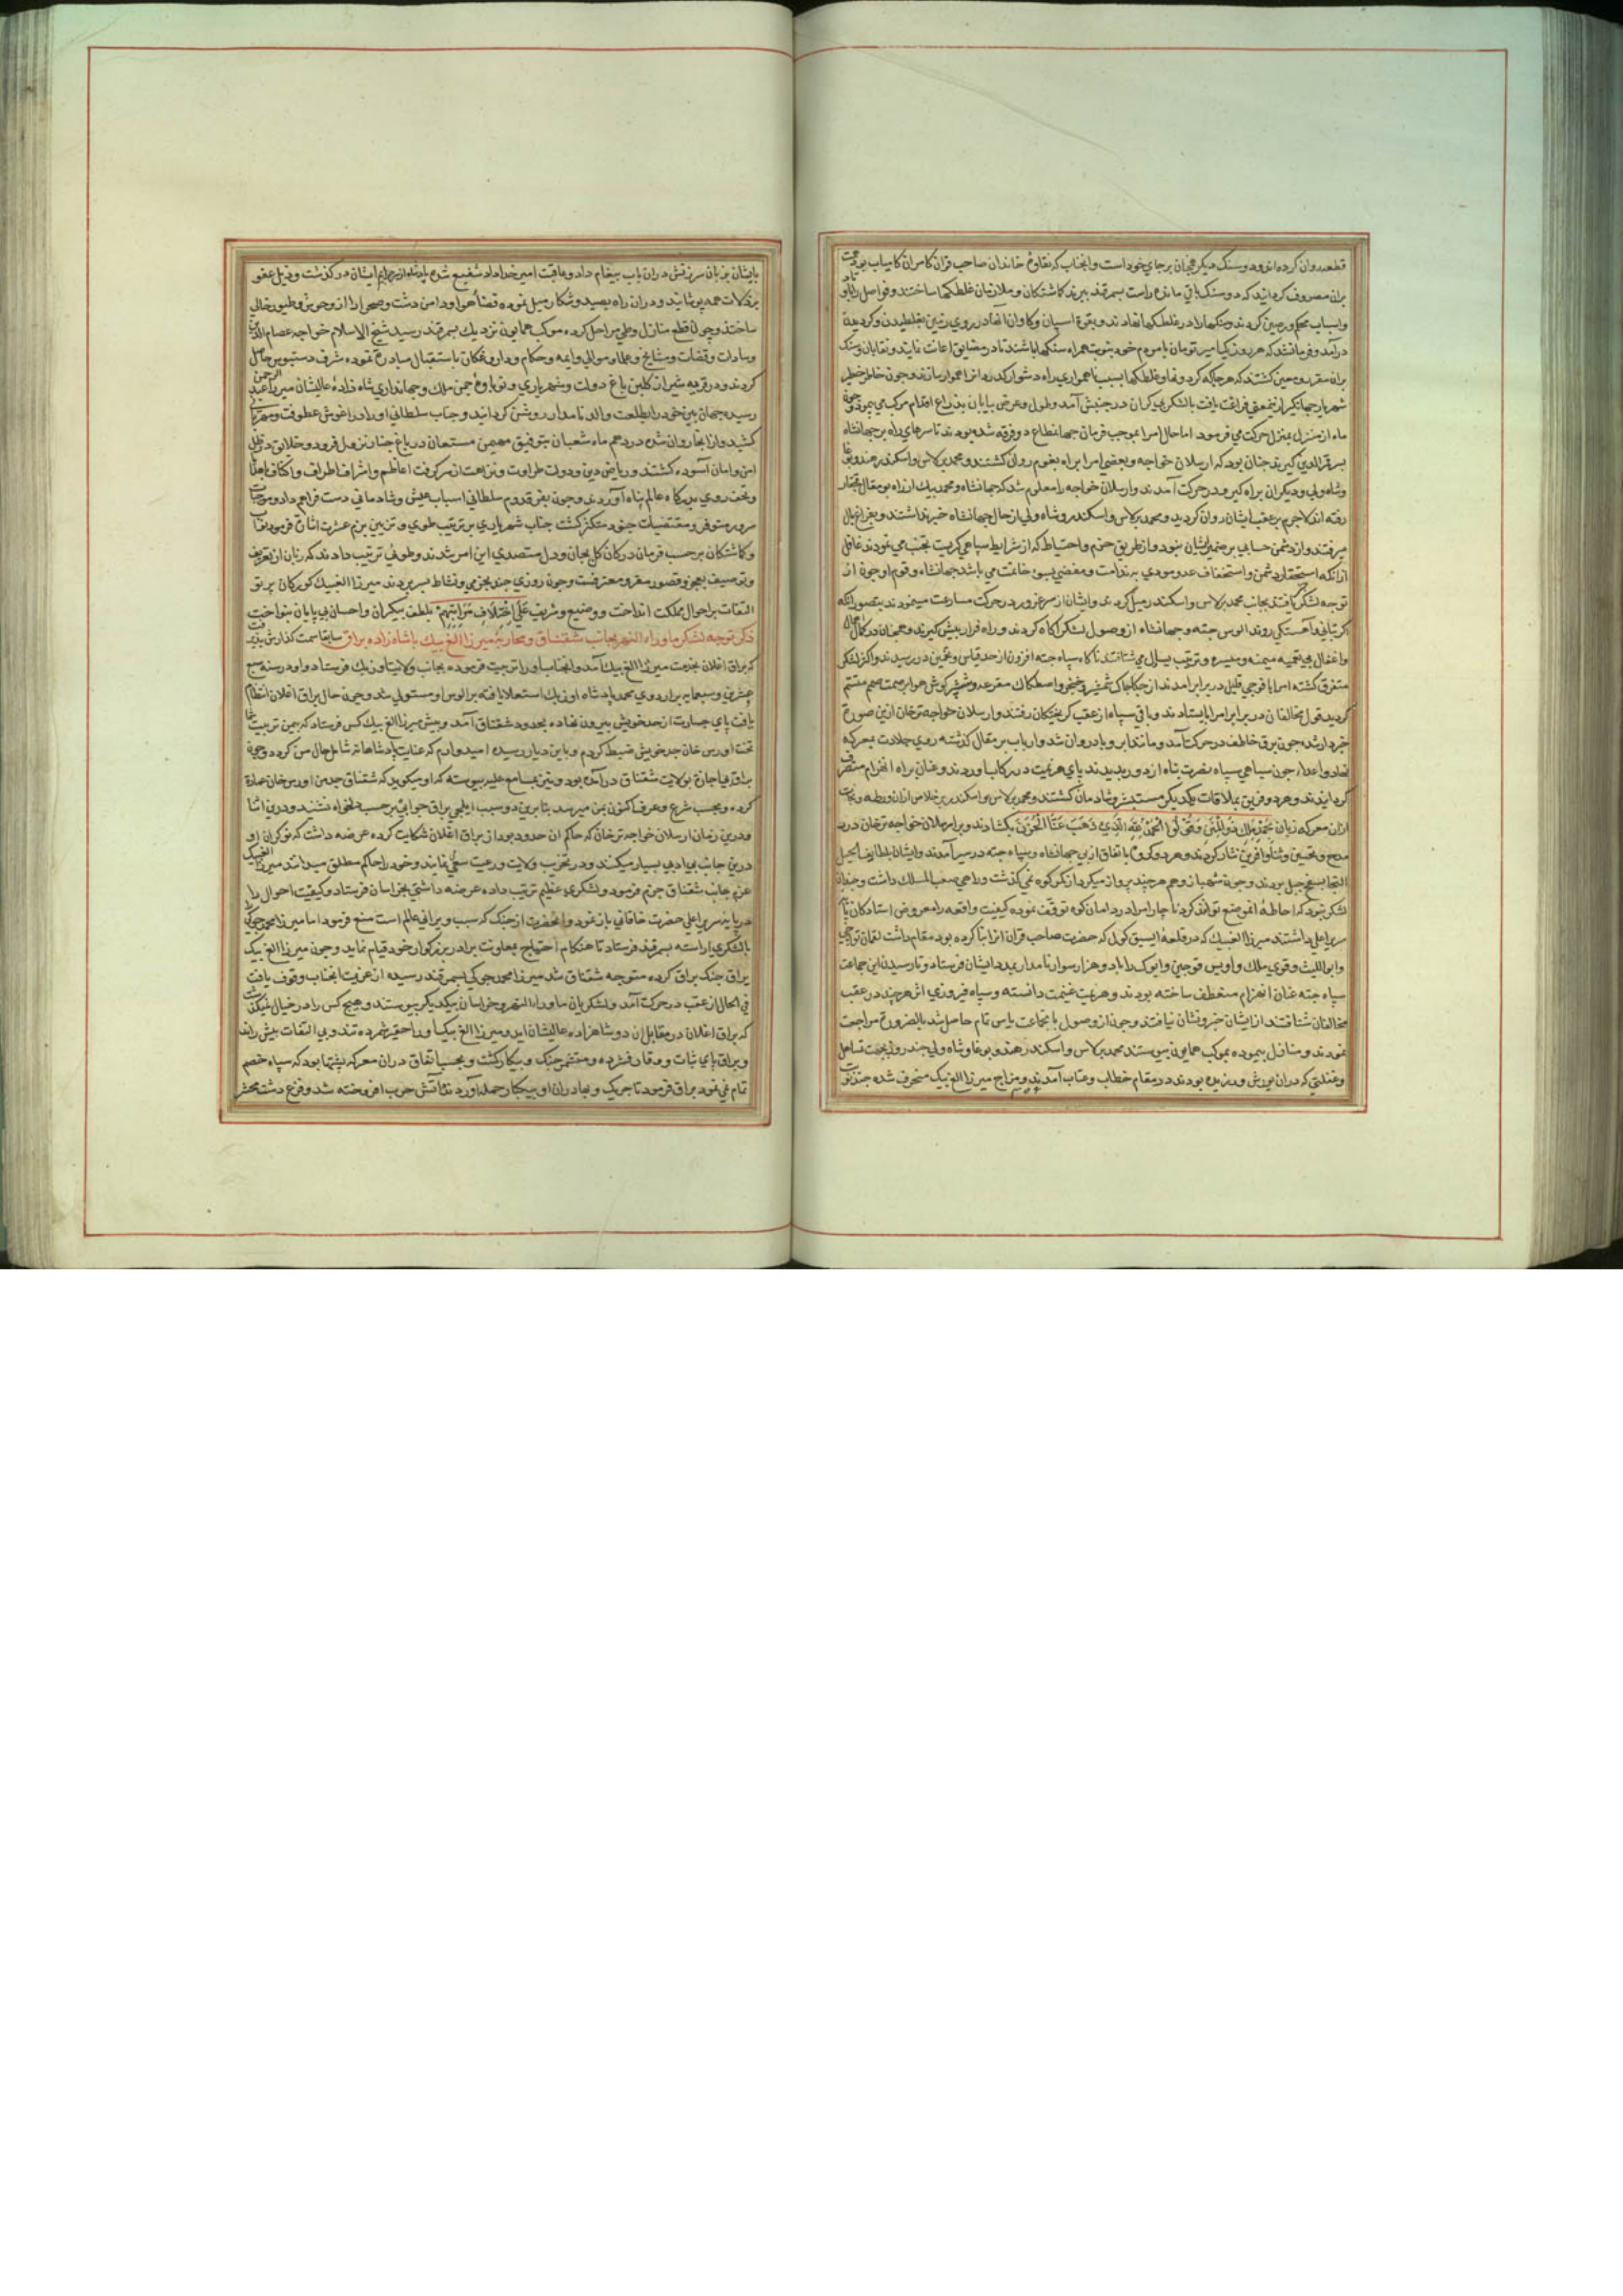 قطعه روان کرده اند و دو سنک دیکر همچنان بر جای خود است و انجناب که نقاوهٔ خاندان صاحب قران کامران کامیاب بود همت
بران مصروف کردانید که دو سنک باقی مانده راست بسمرقند برند کاشتکان و ملازمان غلطکها ساختند و فواصل
واسباب محکم و رصین کردند و سنکها را در غلطکها نهادند و بقوة اسپان و کاوان انها در روی زمین بغلطیدن و کردیدن
درآمد و فرمان شد که هر روز یک امیر تومان با مردم خود بنوبت همراه سنکها باشند تا در مضایق اعانت نمایند و نقابان و سنک
بران مقرر و معین کشتند که هر جا که کرد و نما و غلطکها بسبب ناهمواری راه دشوار کذرد انرا هموار سازند و چون خاطر خطیر
شهریار جهانکیر از معنی فراغت یافت با لشکر بی کران در جنبش آمد و طول و عرض بیابان بذراع اقدام مرکب می پیمود
ماه از منزل بمنزل حرکت می فرمود اما حال امرا بموجب فرمان جهانمطاع دو فرقه شده بودند تا سرهای راه بر جهانشاه
پسر قمرالدین کیرند چنان بود که ارسلان خواجه و بعضی امرا براه یغوم روان کشتند و محمد برلاس و اسکندر هندو بوغا
وشاه ولی و دیکران براه کبر و در حرکت آمدند و ارسلان خواجه را معلوم شد که جهانشاه و محمد بیک از راه
رفته اند لاجرم بر عقب ایشان روان کردید و محمد برلاس و اسکندر و شاه ولی از حال جهانشاه خبر نداشتند و بفراغ بال
میرفتند و از دشمن حسابی بر ضمیر ایشان نبود و از طریق حزم و احتیاط که از شرایط سپاهی کریست تجنب می نمودند غافل
ازانکه استحقار دشمن و استخفاف عدو مودی به ندامت و مفضی بسوء خاتمت می باشد جهانشاه و قوم او چون از
توجه لشکر یافتند بجانب محمد برلاس و اسکندر میل کردند و ایشان از سر غرور در حرکت مسارعت مینمودند بتصور انکه
کر بتانی و آهستکی روند الوس جته و جهانشاه از وصول لشکر اکاه کردند و راه فرار پیش کیرند و همچنان در کمال
واغفال بی تعبیه میمنه و میسره و ترتیب یسال می شتافتند ناکاه سپاه جته افزون از حد قیاس و تخمین در رسیدند و اکثر لشکر
متفرق کشته امرا با فوجی قلیل در برابر امدند از چکاچاک شمشیر و خنجر و اصطکاک مقرعه و شپشپر کوش هوا بر صمت صم متسم
کردید قول مخالفان در برابر امرا بایستادند و باقی سپاه از عقب کریختکان رفتند و ارسلان خواجه ترخان ازین صورة
خبردار شده چون برق خاطف در حرکت آمد و مانند ابر و باد روان شد و ارباب بر مقال کذشته روی جلادت بمعرکه
نهاد و اعدا چون سیاهی سپاه نصرت پناه از دور بدیدند پای هزیمت در رکاب اوردند و عنان براه انهزام منصرف
کردانیدند و هر دو فریق بملاقات یکدیکر مستبشر و شادمان کشتند و محمد برلاس و اسکندر بر خلاص ازان ورطه و نجات
ازان معرکه زبان وَقَالُوا الْحَمْدُ لِلَّهِ الَّذِي أَذْهَبَ عَنَّا الْحُزْنَ بکشادند و بر ارسلان خواجه ترخان درر
مدح و تحسین و ثنا و آفرین نثار کردند و هر دو کروه باتفاق از پی جهانشاه و سپاه جته در سیر آمدند و ایشان بلطایف الحیل
التجا بسفح جبل بردند و چون شهباز وهم هر چند پرواز میکرد از کرد کوه نمی کذشت و راهی صعب المسلک داشت و چندان
لشکر نبود که احاطهٔ انموضع تواند کرد ناچار امرا در دامان کوه توقف نموده کیفیت واقعه را معروض استادکان پایهٔ
سریر اعلی داشتند میرزا الغ بیک که در قلعهٔ ایسیق کول که حضرت صاحب قران انرا بنا کرده بود مقام داشت لقمان تواچی
وابو اللیث و قوی ملک و اویس قوجین و ابوک را با دو هزار سوار نامدار بمدد ایشان فرستاد و تا رسیدن این جماعت
سپاه جته عنان انهزام منعطف ساخته بودند و هزیمت غنیمت دانسته و سپاه فیروزی اثر هر چند در عقب
مخالفان شتافتند از ایشان خبر و نشان نیافتند و چون از وصول بانجماعت یاس تمام حاصل شد بالضرورة مراجعت
نمودند و منازل پیموده بموکب همایون پیوستند محمد برلاس و اسکندر هندو بوغا و شاه ولی چند روز بجهت تساهل
وغفلتی که دران یورش ورزیده بودند در مقام خطاب و عتاب آمدند و مزاج میرزا الغ بیک منحرف شده چند نوبت
بایشان بزبان سرزنش دران باب پیغام داد و عاقبت امیر خداداد شفیع شده پادشاه از جرایم ایشان درکذشت و ذیل عفو
بر زلات همه پوشانید و دران راه بصید و شکار میل نموده فضاء هوا و دامن دشت و صحرا را از وحوش و طیور خالی
ساختند و چون قطع منازل و طی مراحل کرده موکب همایون نزدیک بسمرقند رسید شیخ الاسلام خواجه عصام الدین
وسادات و قضات و مشایخ و علما و موالی و ایمه و حکام و داروغکان باستقبال مبادرت نموده شرف دستبوس حاصل
کردند و در قریه شیراز کلبن باغ دولت و شهریاری و نوباوهٔ چمن ملک و جهانداری شاه زادهٔ عالیشان میرزا عبد الرحمن
رسیده جهان بین خود را بطلعت والد نامدار روشن کردانید و جناب سلطانی او را در اغوش عطوفت و مهربانی
کشید و از انجا روان شده در دهم ماه شعبان بتوفیق مهیمن مستعان در باغ چنار نزول فرود و خلایق در ظل
امن و امان آسوده کشتند و ریاض دین و دولت طراوت و نزاهت از سر کرفت اعاظم و اشراف اطراف و اکناف با هدایا
وتحف روی بدرکاه عالم پناه آوردند و چون بفر قدوم سلطانی اسباب عیش و شادمانی دست فراهم داد و موجبات
سرور متوفی و مقتضیات حبور متکثر کشت جناب شهریاری بر ترتیب طوی و تزیین بزم عشرت اشارة فرمود نواب
وکاشتکان بر حسب فرمان در کان کل بجان و دل متصدی این امر شدند و طویی ترتیب دادند که زبان از تعریف
وتوصیف بعجز و قصور مقر و معترفست و چون روزی چند بخرمی و نشاط بسر بردند میرزا الغبیک کورکان پرتو
التفات بر احوال مملکت انداخت و وضیع و شریف عَلَی اِخْتِلَافِ مَرَاتِبِهِمْ بلطف بیکران و احسان بی پایان بنواخت
ذکر توجه لشکر ماوراء النهر بجانب سقناق و محاربهٔ میرزا الغ بیک با شاه زاده براق سابقا سمت کذارش پذیرفت
که براق اغلان بخدمت میرزا الغ بیک آمد و انجناب او را تربیت فرموده بجانب ولایت اوزبک فرستاد و او در سنه سبع
عشرین و سبعمایه بر اردوی محمد پادشاه اوزبک استعلا یافته بر الوس او مستولی شد و چون حال براق اغلان انتظام
یافت پای جسارت از حد خویش بیرون نهاده بحدود سقناق آمد و پیش میرزا الغ بیک کس فرستاد که بیمن تربیت شما
تخت اورس خان جد خویش ضبط کردم و باین دیار رسیده امیدوارم که عنایت پادشاهانه شامل حال من کردد و چون
براق بی اجازة بولایت سقناق درآمده بود و نیز بمسامع علیه پیوسته که او میکوید که سقناق جد من اورس خان عمارة
کرده و بحسب شرع و عرف اکنون بمن میرسد بنابرین دو سبب ایلچی براق جوابی بر حسب دلخواه نشنید و درین اثنا
ودرین زمان ارسلان خواجه ترخان که حاکم ان حدود بود از براق اغلان شکایت کرده عرضه داشت که نوکران او
درین جانب بی ادبی بسیار میکنند و در تخریب ولایت و رعیت سعی مینمایند و خود را حاکم مطلق میدانند میرزا الغبیک
عزم جانب سقناق جزم فرمود و لشکری عظیم ترتیب داده عرضه داشتی بخراسان فرستاد و کیفیت احوال را
در پایه سریر اعلی حضرت خاقانی باز نمود و انحضرت از جنک که سبب ویرانی عالم است منع فرمود اما میرزا محمد جوکی را
با لشکری اراسته بسمرقند فرستاد تا هنکام احتیاج بمعاونت برادر بزرکوار خود قیام نماید و چون میرزا الغ بیک
یراق جنک براق کرده متوجه سقناق شد میرزا محمد جوکی بسمرقند رسیده از عزیمت انجناب وقوف یافت
فی الحال از عقب در حرکت آمد و لشکریان ماوراء النهر و خراسان بیکدیکر پیوستند و هیچ کس را در خیال نمیکذشت
که براق اغلان در مقابل ان دو شاهزاده عالیشان آید و میرزا الغ بیک او را حقیر شمرده تند و بی التفات پیش راند
وبراق پای ثبات و وقار فشرده و منتشمر جنک و پیکار کشت و بحسب اتفاق دران معرکه پشتها بود که سپاه خصم
تمام نمی نمود براق فرمود تا چریک و بهادران او بیکبار حمله آوردند آتش حرب افروخته شد و فزع دشت محشر